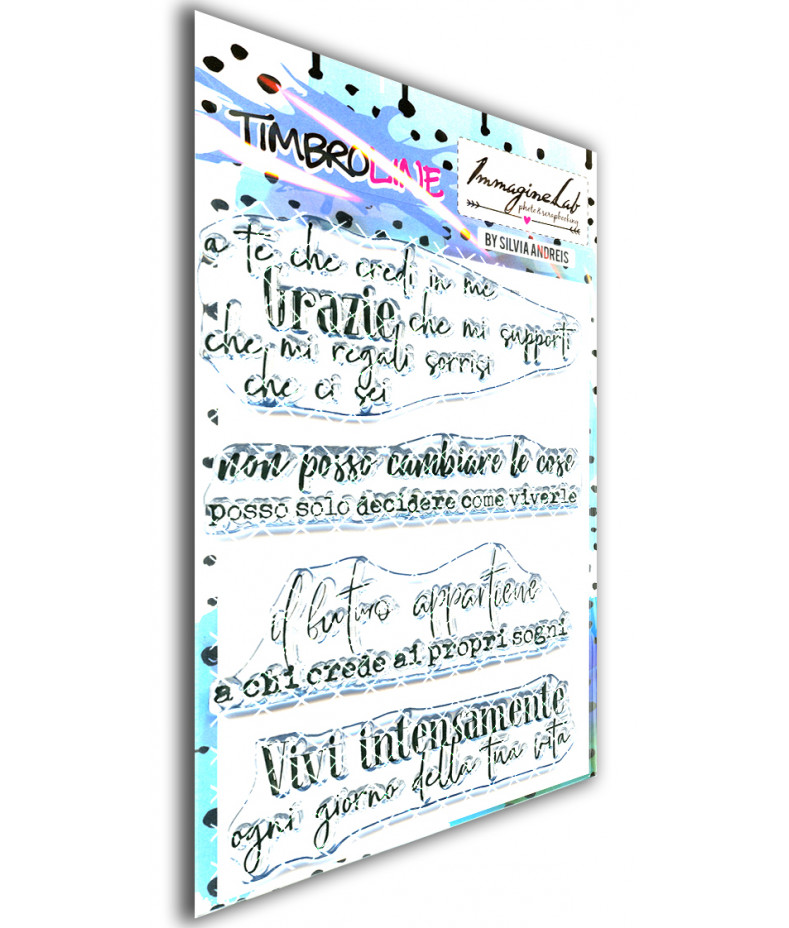 TIMBROLINE
ImmagineLab
photo&scrapbooking
BY SILVIA ANDREIS
a te che credi in me
Grazie che mi supporti
che mi regali sorrisi
che ci sei
non posso cambiare le cose
posso solo decidere come viverle
il futuro appartiene
a chi crede ai propri sogni
Vivi intensamente
ogni giorno della tua vita